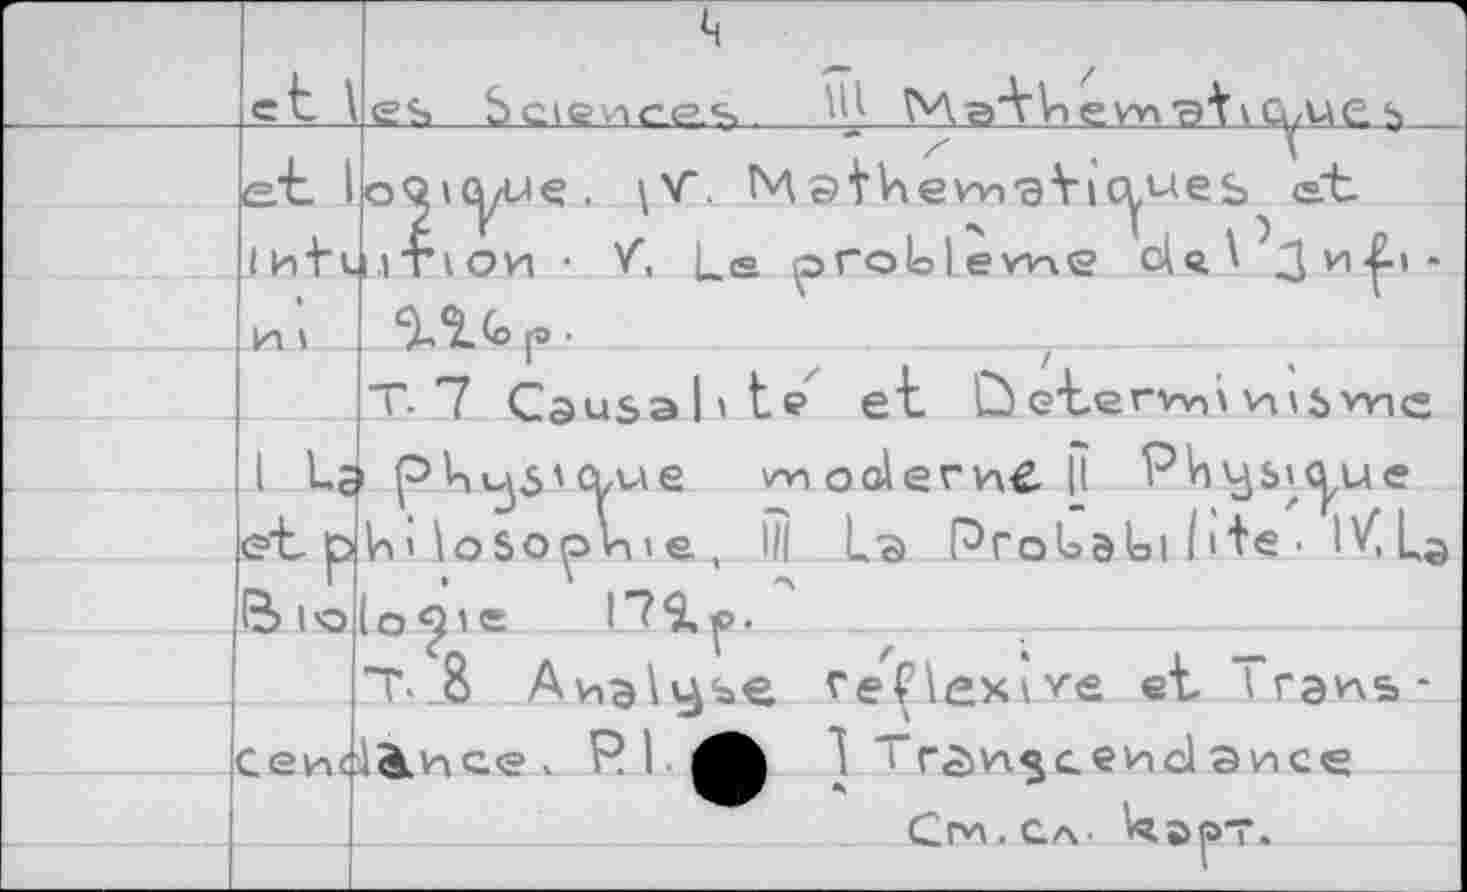 4
et les Sciences. III Mathématiques
et logique. IV. Mathématiques et
intuition. V. Le problème de l'Infi-
ni 226 p.
T. 7 Causalité et Déterminisme
I La physique moderne II Physique
et philosophie, III La Probabilité. IV. La
Biologie 172 p.
T. 8 Analyse réflexive et Trans-
cendance. P. 1. I Transcendance
См. сл. карт.